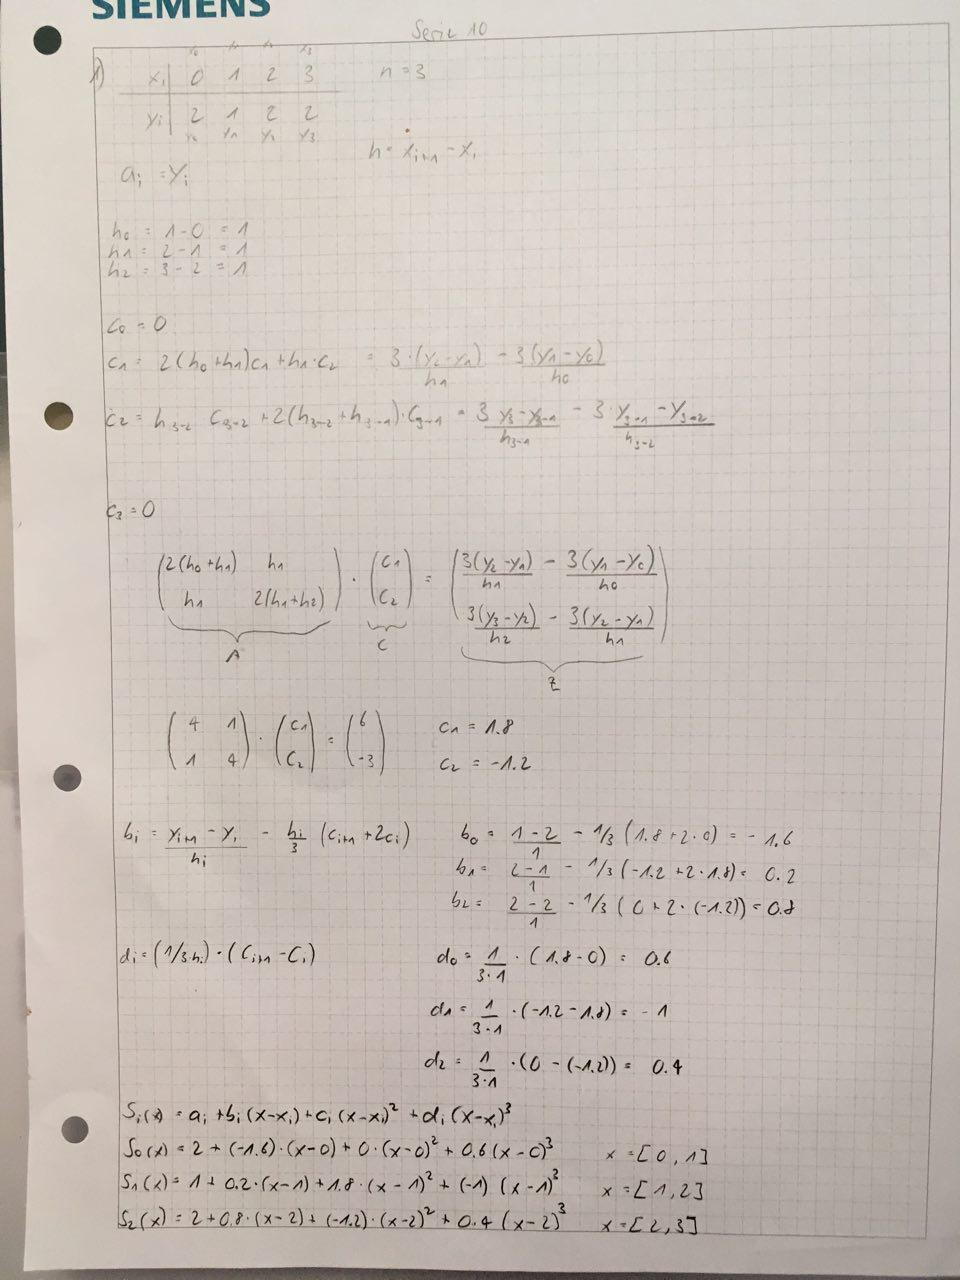 SIEMENS
Serie 10
1)
x0 x1 x2 x3
xi | 0 1 2 3 n = 3
yi | 2 1 2 2
y0 y1 y2 y3
h = xi+1 - xi
ai = yi
h0 = 1-0 = 1
h1 = 2-1 = 1
h2 = 3-2 = 1
c0 = 0
c1 = 2(h0+h1)c1 + h1·c2 = 3·(y2-y1)/h1 - 3(y1-y0)/h0
c2 = h3-2 c3-2 + 2(h3-2 + h3-1)·c3-1 = 3 (y3-y3-1)/h3-1 - 3· (y3-1 - y3-2)/h3-2
c3 = 0
(2(h0+h1) h1) · (c1) = (3(y2-y1)/h1 - 3(y1-y0)/h0)
(h1 2(h1+h2)) (c2) (3(y3-y2)/h2 - 3(y2-y1)/h1)
A c z
(4 1) · (c1) = (6) c1 = 1.8
(1 4) (c2) (-3) c2 = -1.2
bi = (yi+1 - yi)/hi - hi/3 (ci+1 + 2ci) b0 = (1-2)/1 - 1/3 (1.8+2·0) = -1.6
b1 = (2-1)/1 - 1/3 (-1.2+2·1.8) = 0.2
b2 = (2-2)/1 - 1/3 (0+2·(-1.2)) = 0.8
di = (1/3hi)·(ci+1 - ci) d0 = 1/(3·1) · (1.8-0) = 0.6
d1 = 1/(3·1) ·(-1.2-1.8) = -1
d2 = 1/(3·1) ·(0-(-1.2)) = 0.4
Si(x) = ai + bi(x-xi) + ci(x-xi)² + di(x-xi)³
S0(x) = 2 + (-1.6)·(x-0) + 0·(x-0)² + 0.6(x-0)³ x = [0,1]
S1(x) = 1 + 0.2·(x-1) + 1.8·(x-1)² + (-1) (x-1)³ x = [1,2]
S2(x) = 2 + 0.8·(x-2) + (-1.2)·(x-2)² + 0.4 (x-2)³ x = [2,3]